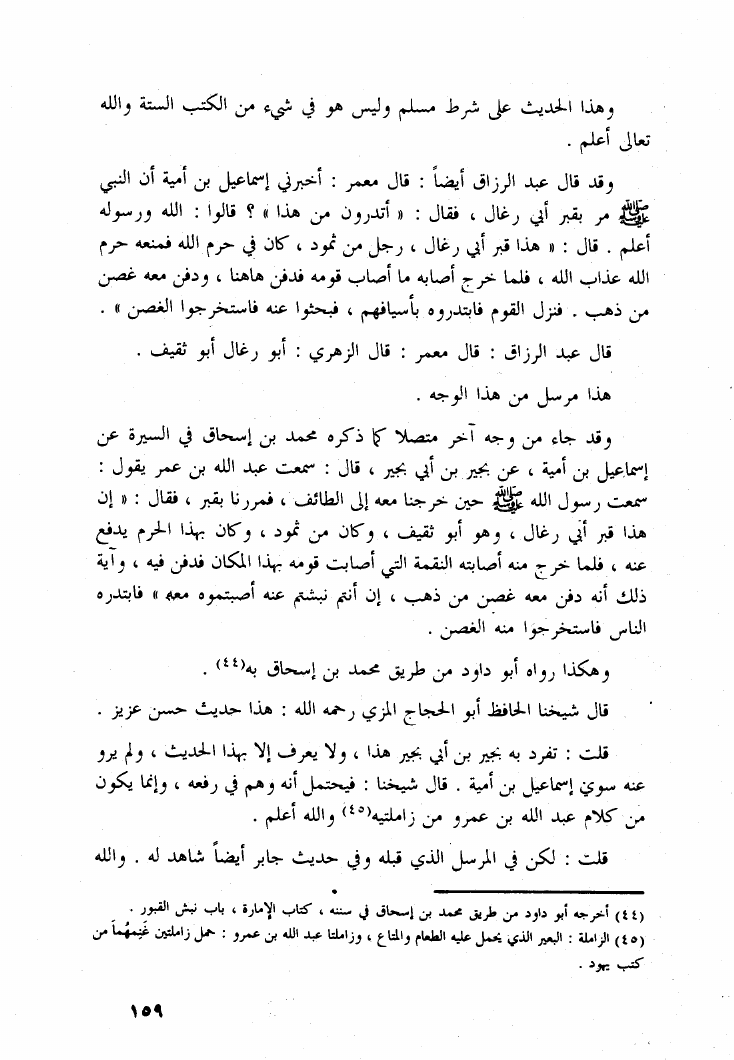 وهذا الحديث على شرط مسلم وليس هو في شيء من الكتب الستة والله
تعالى أعلم .
وقد قال عبد الرزاق أيضاً : قال معمر : أخبرني إسماعيل بن أمية أن النبي
ﷺ مر بقبر أبي رغال ، فقال : « أتدرون من هذا » ؟ قالوا : الله ورسوله
أعلم . قال : « هذا قبر أبي رغال ، رجل من ثمود ، كان في حرم الله فمنعه حرم
الله عذاب الله ، فلما خرج أصابه ما أصاب قومه فدفن هاهنا ، ودفن معه غصن
من ذهب . فنزل القوم فابتدروه بأسيافهم ، فبحثوا عنه فاستخرجوا الغصن » .
قال عبد الرزاق : قال معمر : قال الزهري : أبو رغال أبو ثقيف .
هذا مرسل من هذا الوجه .
وقد جاء من وجه آخر متصلا كما ذكره محمد بن إسحاق في السيرة عن
إسماعيل بن أمية ، عن بجير بن أبي بجير ، قال : سمعت عبد الله بن عمر يقول :
سمعت رسول الله ﷺ حين خرجنا معه إلى الطائف ، فمررنا بقبر ، فقال : « إن
هذا قبر أبي رغال ، وهو أبو ثقيف ، وكان من ثمود ، وكان بهذا الحرم يدفع
عنه ، فلما خرج منه أصابته النقمة التي أصابت قومه بهذا المكان فدفن فيه ، وآية
ذلك أنه دفن معه غصن من ذهب ، إن أنتم نبشتم عنه أصبتموه معه » فابتدره
الناس فاستخرجوا منه الغصن .
وهكذا رواه أبو داود من طريق محمد بن إسحاق به(٤٤) .
قال شيخنا الحافظ أبو الحجاج المزي رحمه الله : هذا حديث حسن عزيز .
قلت : تفرد به بجير بن أبي بجير هذا ، ولا يعرف إلا بهذا الحديث ، ولم يرو
عنه سوى إسماعيل بن أمية . قال شيخنا : فيحتمل أنه وهم في رفعه ، وإنما يكون
من كلام عبد الله بن عمرو من زاملتيه(٤٥) والله أعلم .
قلت : لكن في المرسل الذي قبله وفي حديث جابر أيضاً شاهد له . والله
(٤٤) أخرجه أبو داود من طريق محمد بن إسحاق في سننه ، كتاب الإمارة ، باب نبش القبور .
(٤٥) الزاملة : البعير الذي يحمل عليه الطعام والمتاع ، وزاملتا عبد الله بن عمرو : حمل زاملتين غَنِمهُما من
كتب يهود .
١٥٩